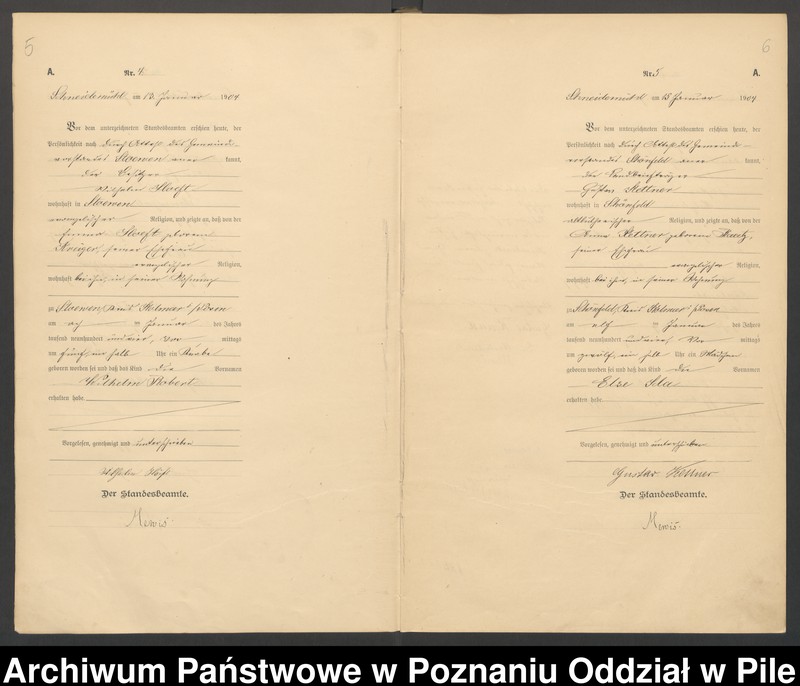 5
A.
Nr. 4
Schneidemühl am 13. Januar 1904
Vor dem unterzeichneten Standesbeamten erschien heute, der
Persönlichkeit nach durch Attest des Gemeinde-
vorstandes Stoewen aner kannt,
der Besitzer
Wilhelm
wohnhaft in Stoewen
evangelischer Religion, und zeigte an, daß von der
geborene
Krüger, seiner Ehefrau
evangelischer Religion,
wohnhaft bei ihm, in seiner Wohnung
zu Stoewen, Kreis Kolmar i/Posen
am ten Januar des Jahres
tausend neunhundert und vier, Vor mittags
um fünf ein halb Uhr ein Knabe
geboren worden sei und daß das Kind die Vornamen
Wilhelm Robert
erhalten habe
Vorgelesen, genehmigt und unterschrieben
Wilhelm
Der Standesbeamte.
6
Nr. 5
A.
Schneidemühl am 15 Januar 1904
Vor dem unterzeichneten Standesbeamten erschien heute, der
Persönlichkeit nach durch Attest des Gemeinde-
vorstandes Schönfeld aner kannt,
der
Gustav Kettner
wohnhaft in Schönfeld
altlutherischer Religion, und zeigte an, daß von der
Kettner geborene
seiner Ehefrau
evangelischer Religion,
wohnhaft bei ihm, in seiner Wohnung
zu Schönfeld, Kreis Kolmar i/Posen
am elf ten Januar des Jahres
tausend neunhundert und vier Vor mittags
um zwölf ein halb Uhr ein Mädchen
geboren worden sei und daß das Kind die Vornamen
Else
erhalten habe
Vorgelesen, genehmigt und unterschrieben
Gustav Kettner
Der Standesbeamte.
Archiwum Państwowe w Poznaniu Oddział w Pile